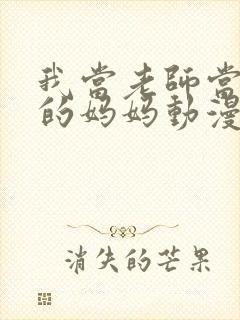 我當老師當
的媽媽動漫
消失的芒果